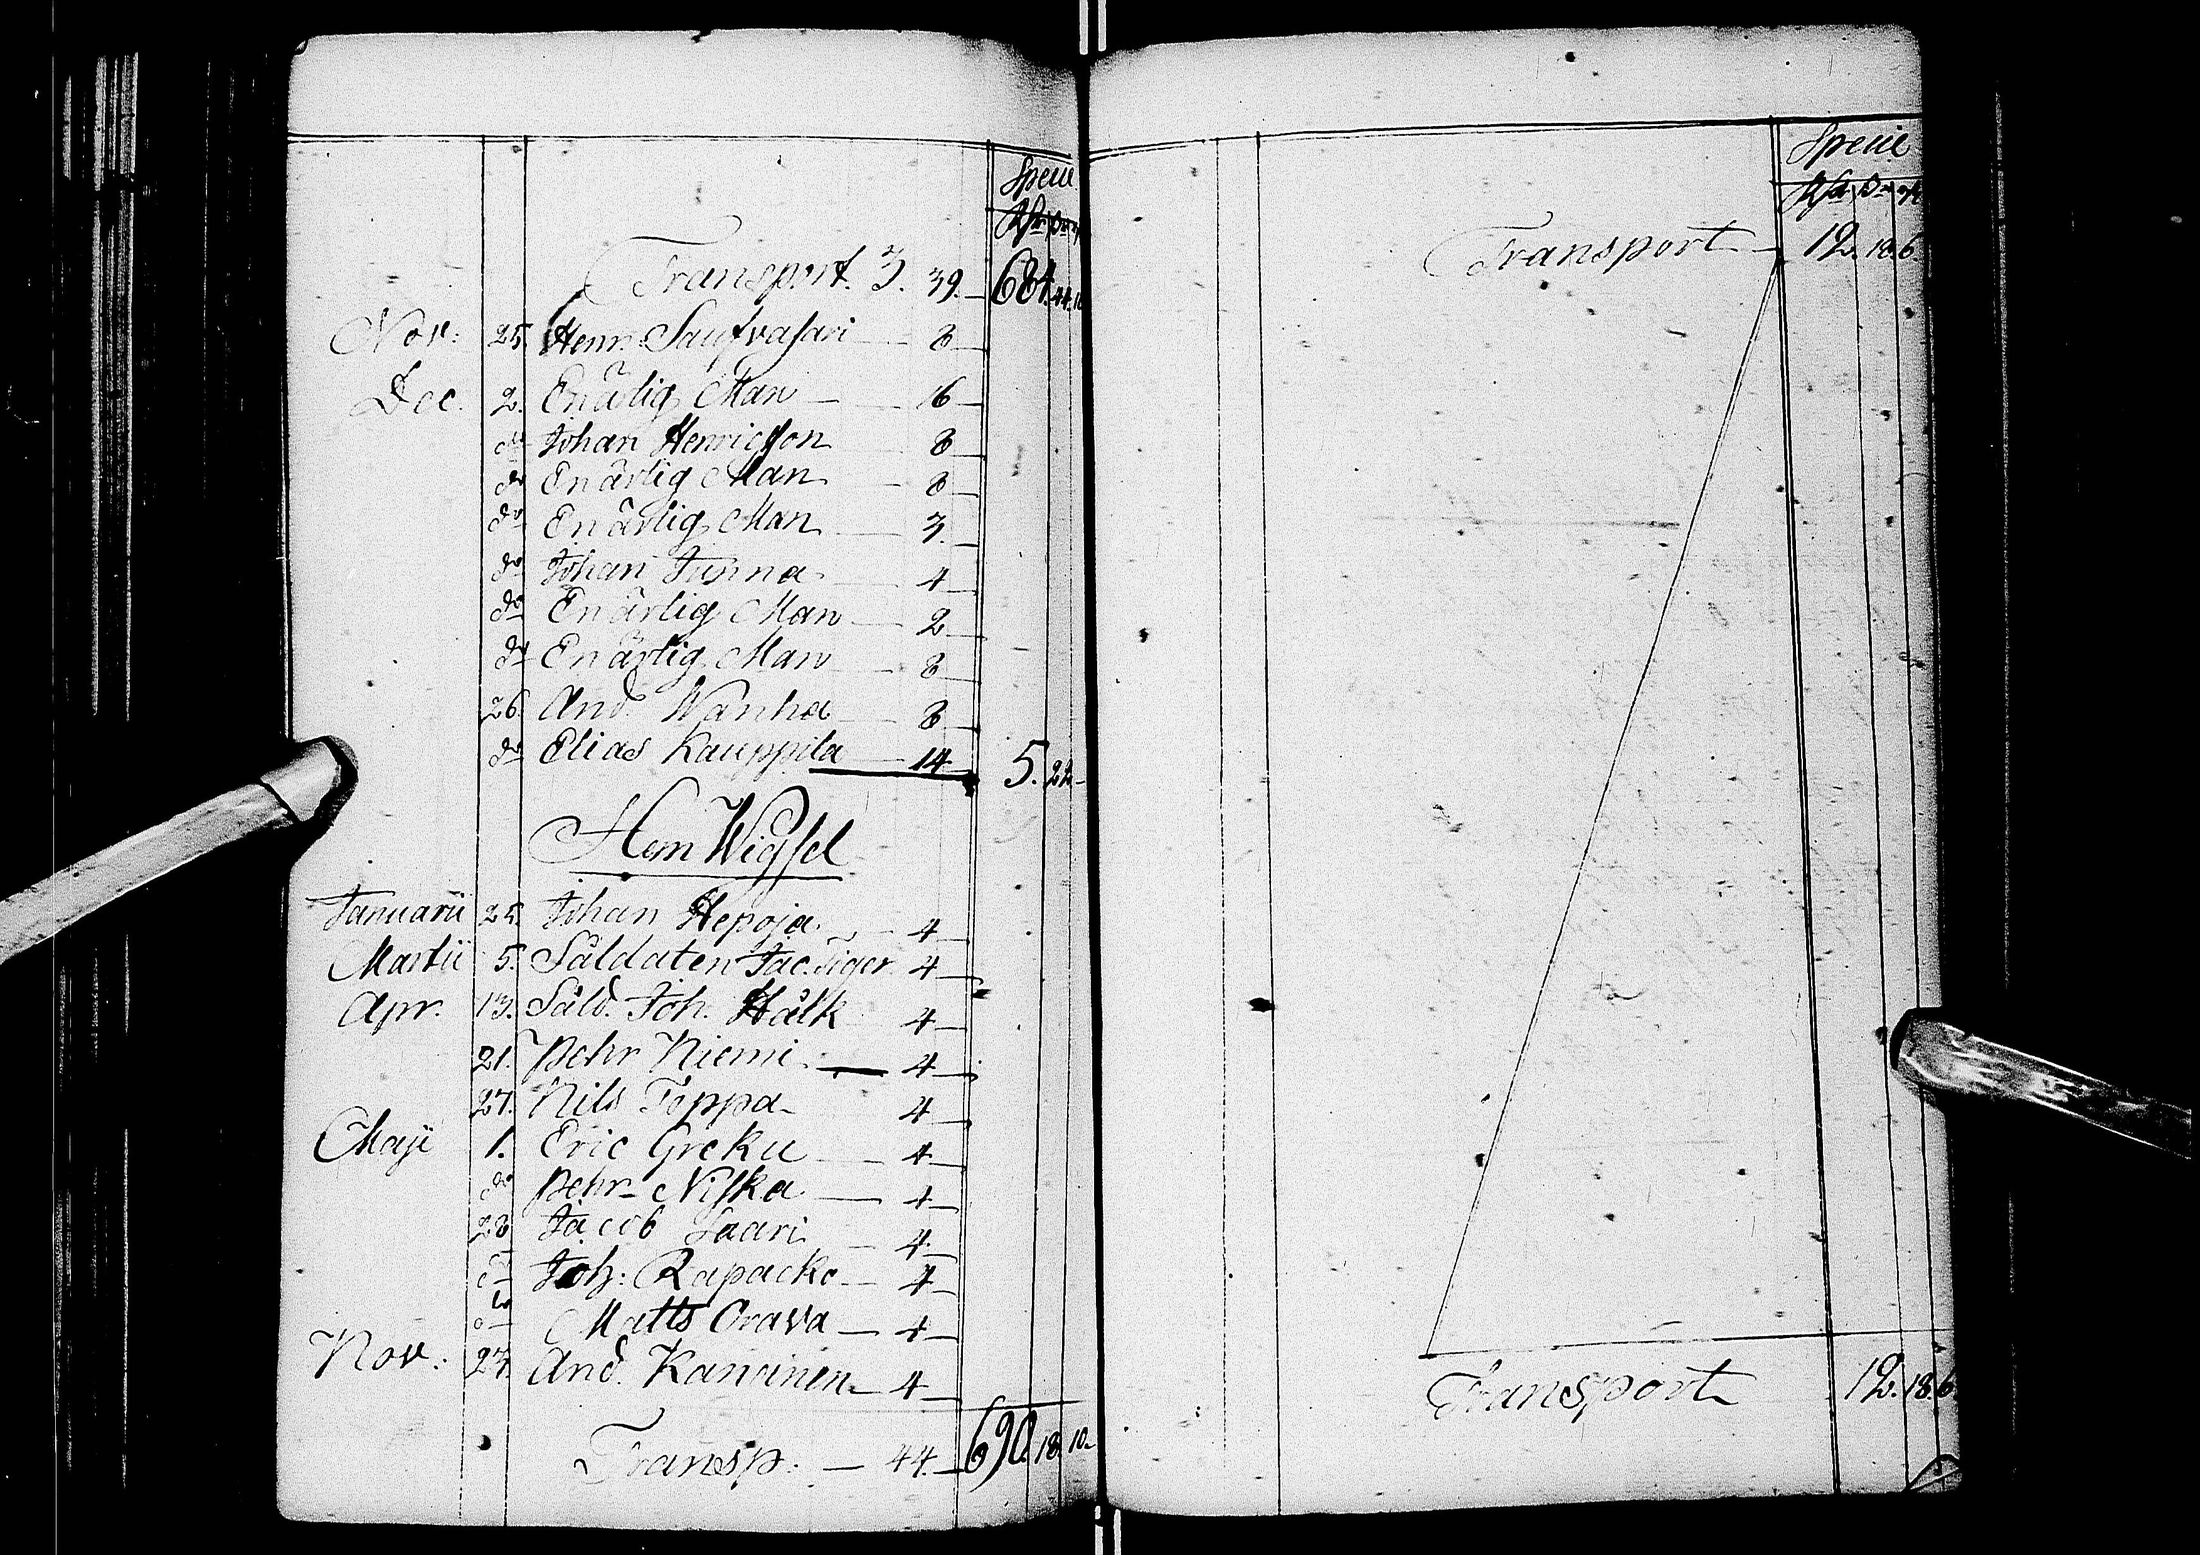 Specie
Rsd. sk. r.
Transport. 3. 39. 684. 44. 10
Nov: 25. Henr. Sautvasari 8
Dec. 2. En ärlig Man 16
do Johan Henricsson 8
do En ärlig Man 8
do En ärlig Man 3.
do Johan Junna 4
do En ärlig Man 2
do En ärlig Man 8
26. And. Wanha 8
do Elias Kauppila 14 5. 22
Hem Wigsel
Januarii 25. Johan Hepoja 4
Martii 5. Såldaten Jac. Tiger 4
Apr. 13. Såld. Joh. Hålk 4
21. Pehr Niemi 4
27. Nils Toppa 4
Maji 1. Eric Greku 4
do Pehr Niska 4
28 Jacob Saari 4
do Joh: Rapacko 4
do Matts Orava 4
Nov: 23. And. Kanoinen 4
Transp: 44. 690. 18. 10
Specie
Rsd. sk. r.
Transport 12. 18. 6
Transport 12. 18. 6